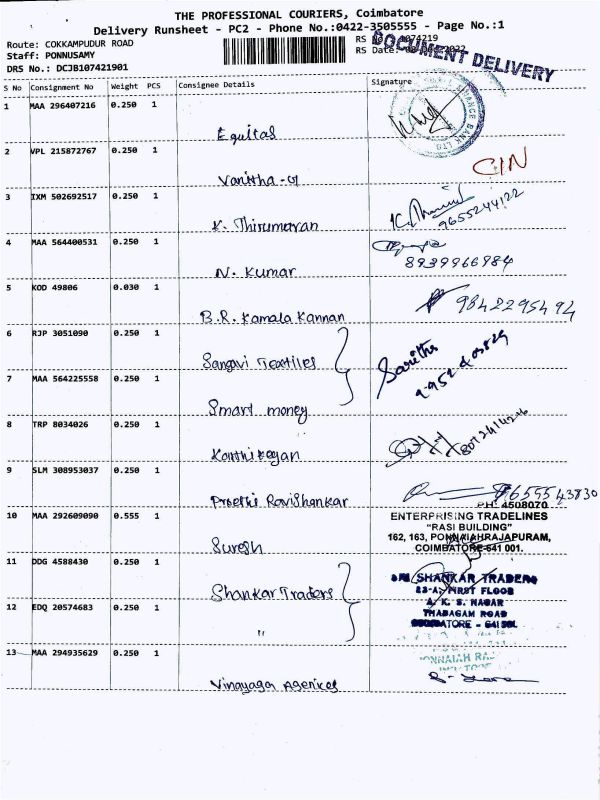 THE PROFESSIONAL COURIERS, Coimbatore
Delivery Runsheet - PC2 - Phone No.:0422-3505555 - Page No.:1
Route: COKKAMPUDUR ROAD
Staff: PONNUSAMY
DRS No.: DCJB107421901
RS No.: 1074219
RS Date:
DOCUMENT DELIVERY
S No Consignment No Weight PCS Consignee Details Signature
1 MAA 296407216 0.250 1
Equitas
BANK LTD
2 VPL 215872767 0.250 1
Vanitha -G
CIN
3 IXM 502692517 0.250 1
K. Thirumaran
9655244122
4 MAA 564400531 0.250 1
N. Kumar
8939966984
5 KOD 49806 0.030 1
B.R. Kamala Kannan
9842295494
6 RJP 3051090 0.250 1
Sangavi Textiles
Saritha
7 MAA 564225558 0.250 1
Smart money
8 TRP 8034026 0.250 1
Karthikeyan
9 SLM 308953037 0.250 1
Preethi Ravishankar
9655543830
PH: 4508070
10 MAA 292609090 0.555 1
Suresh
ENTERPRISING TRADELINES
"RASI BUILDING"
162, 163, PONNAIAHRAJAPURAM,
COIMBATORE-641 001.
11 DDG 4588430 0.250 1
Shankar Traders
SRI SHANKAR TRADERS
23-A, FIRST FLOOR
A. K. S. NAGAR
THADAGAM ROAD
COIMBATORE - 641
12 EDQ 20574683 0.250 1
"
13 MAA 294935629 0.250 1
Vinayaga Agencies